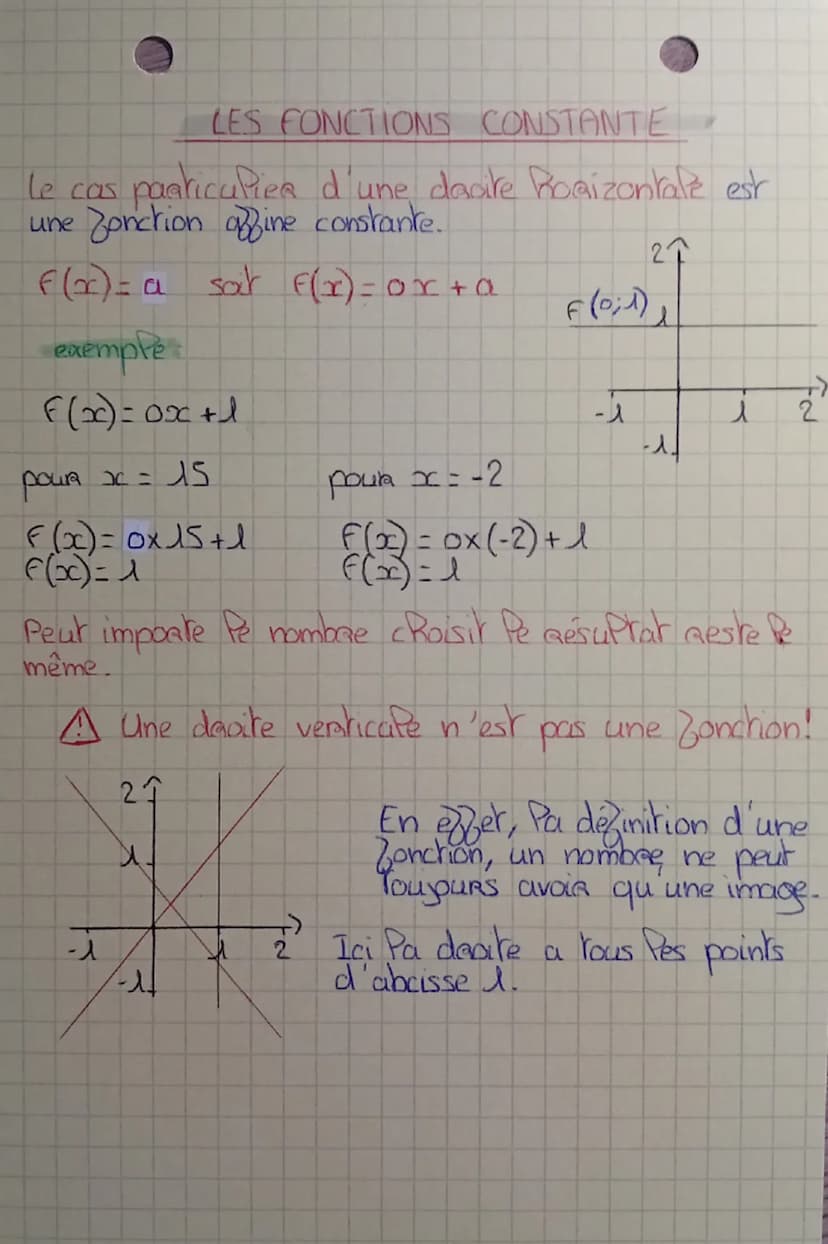 LES FONCTIONS CONSTANTE
Le cas particulier d'une droite horizontale est
une fonction affine constante.
F(x)= a soit F(x)= 0x + a
2
F(0;1) 1
exemple:
F(x)= 0x + 1
-1 1 2
-1
pour x = 15 pour x = -2
F(x)= 0x15+1 F(x) = 0x(-2)+1
F(x)= 1 F(x) = 1
Peut importe le nombre choisit le résultat reste le
même.
⚠ Une droite verticale n'est pas une fonction!
2
1
-1 1 2
-1
En effet, la définition d'une
fonction, un nombre, ne peut
toujours avoir qu'une image.
Ici la droite a tous les points
d'abcisse 1.